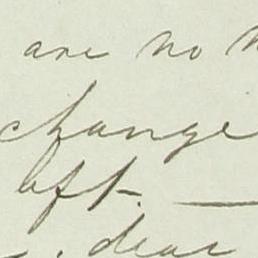 are no
change
left. —
dear